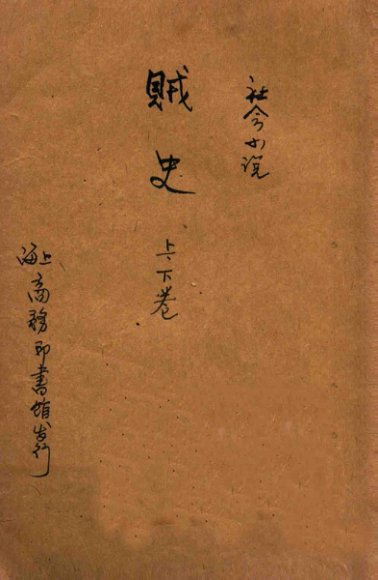 社会小说
贼史
上下卷
上海商務印書馆发行